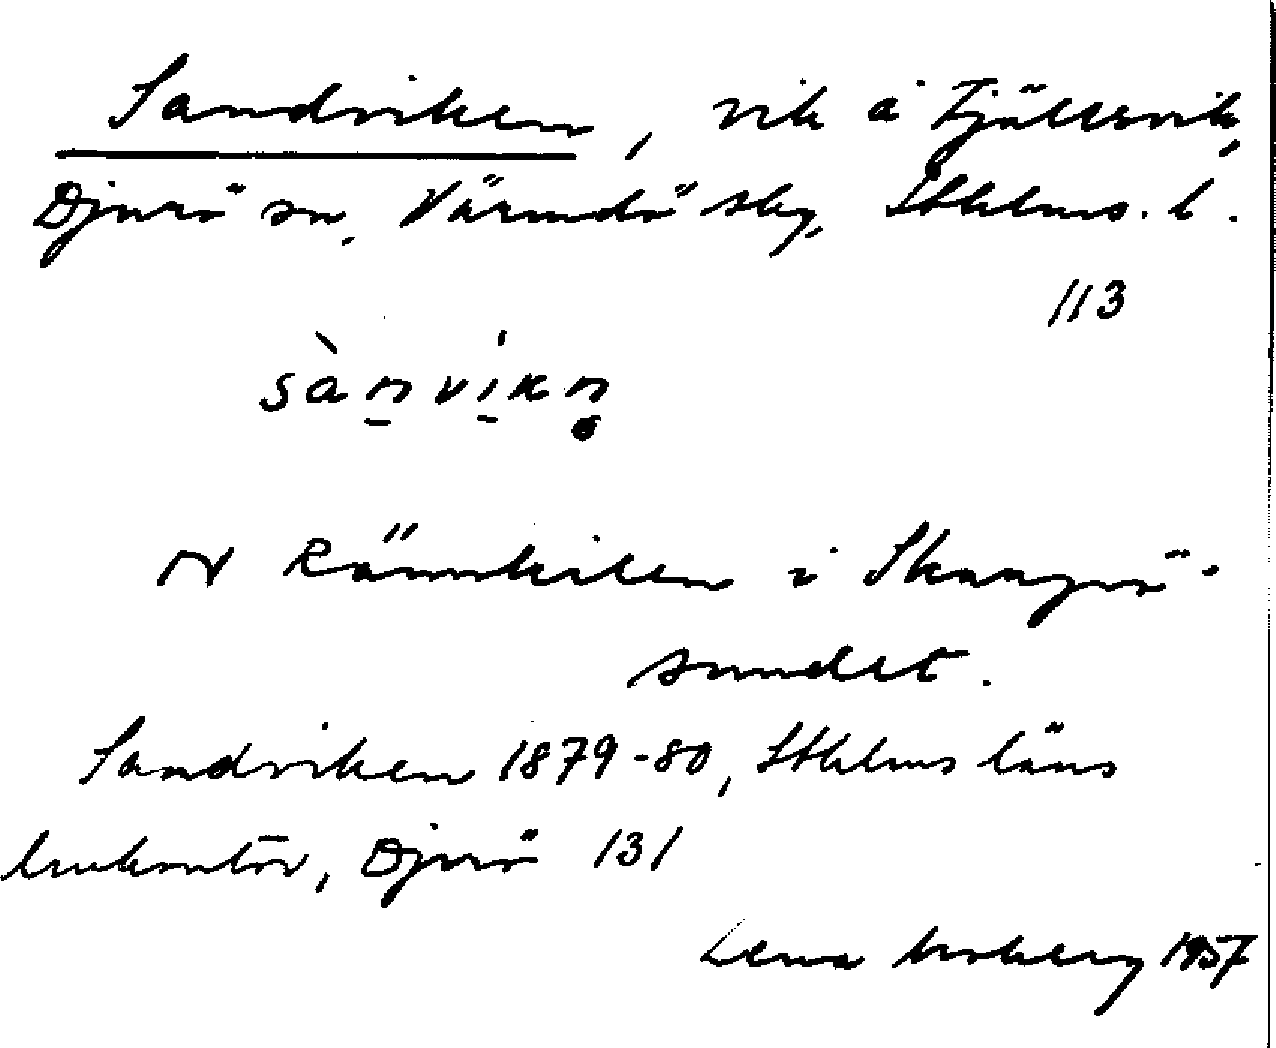 Sandviken, vik å Fjällsvik,
Djurö sn, Värmdö sky, Sthlms. l.
113
sànvikn̥
N Rännkilen i Skagen-
sundet.
Sandviken 1879-80, Sthlms läns
lmkontor, Djurö 131
Lena Moberg 1957